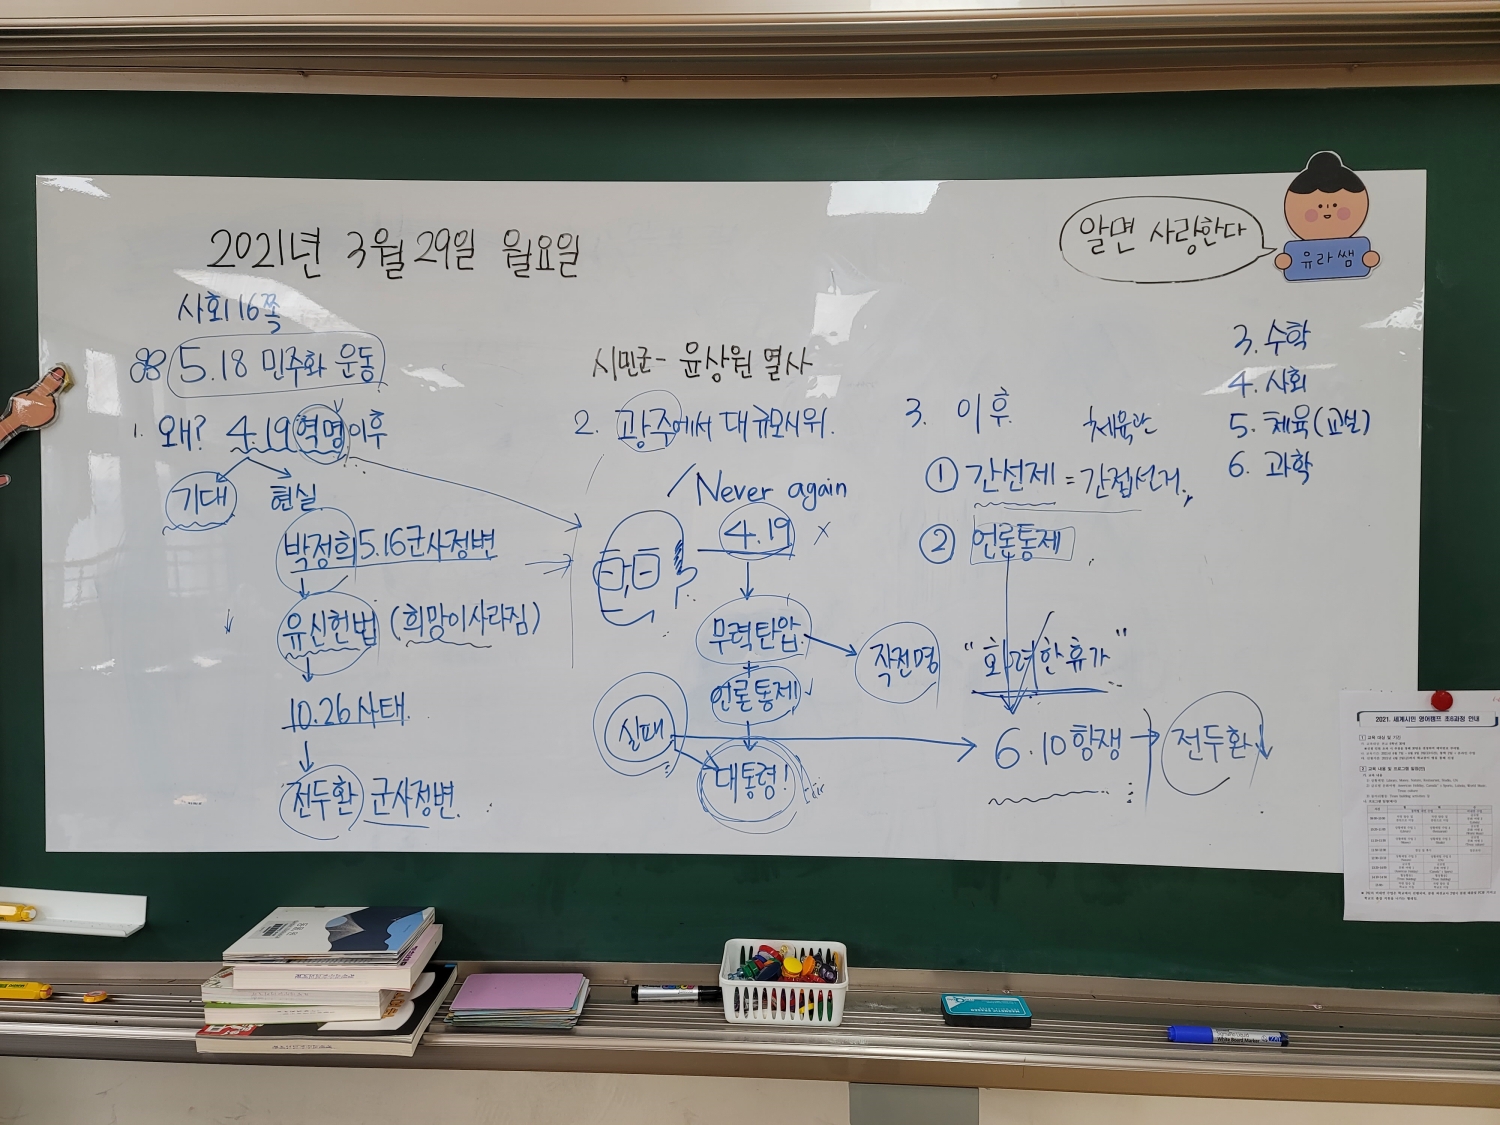 2021년 3월 29일 월요일
알면 사랑한다
유라쌤
사회 16쪽
5.18 민주화 운동
1. 왜? 4.19 혁명 이후
기대 현실
박정희 5.16 군사정변
유신헌법 (희망이 사라짐)
10.26 사태.
전두환 군사정변.
시민군- 윤상원 열사
2. 광주에서 대규모시위.
Never again
4.19 x
무력탄압.
작전명 "화려한 휴가"
언론통제
실패
대통령!
3. 이후
체육관
① 간선제 = 간접선거.
② 언론통제
6.10항쟁 → 전두환↓
3. 수학
4. 사회
5. 체육(교실)
6. 과학
2021. 세계시민 영어캠프 초6과정 안내
White Board Marker